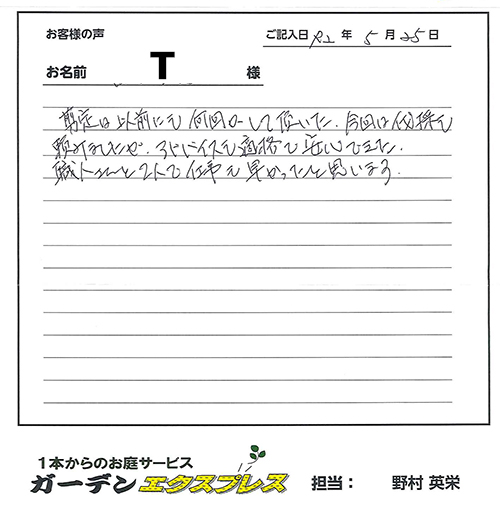 お客様の声
ご記入日 R2 年 5 月 25 日
お名前 T 様
剪定は以前にも何回かして頂いた。今回は伐採も
頼みましたが、アドバイスも適格で安心できた。
職人さんと2人で仕事も早かったと思います。
1本からのお庭サービス
ガーデンエクスプレス 担当： 野村 英栄